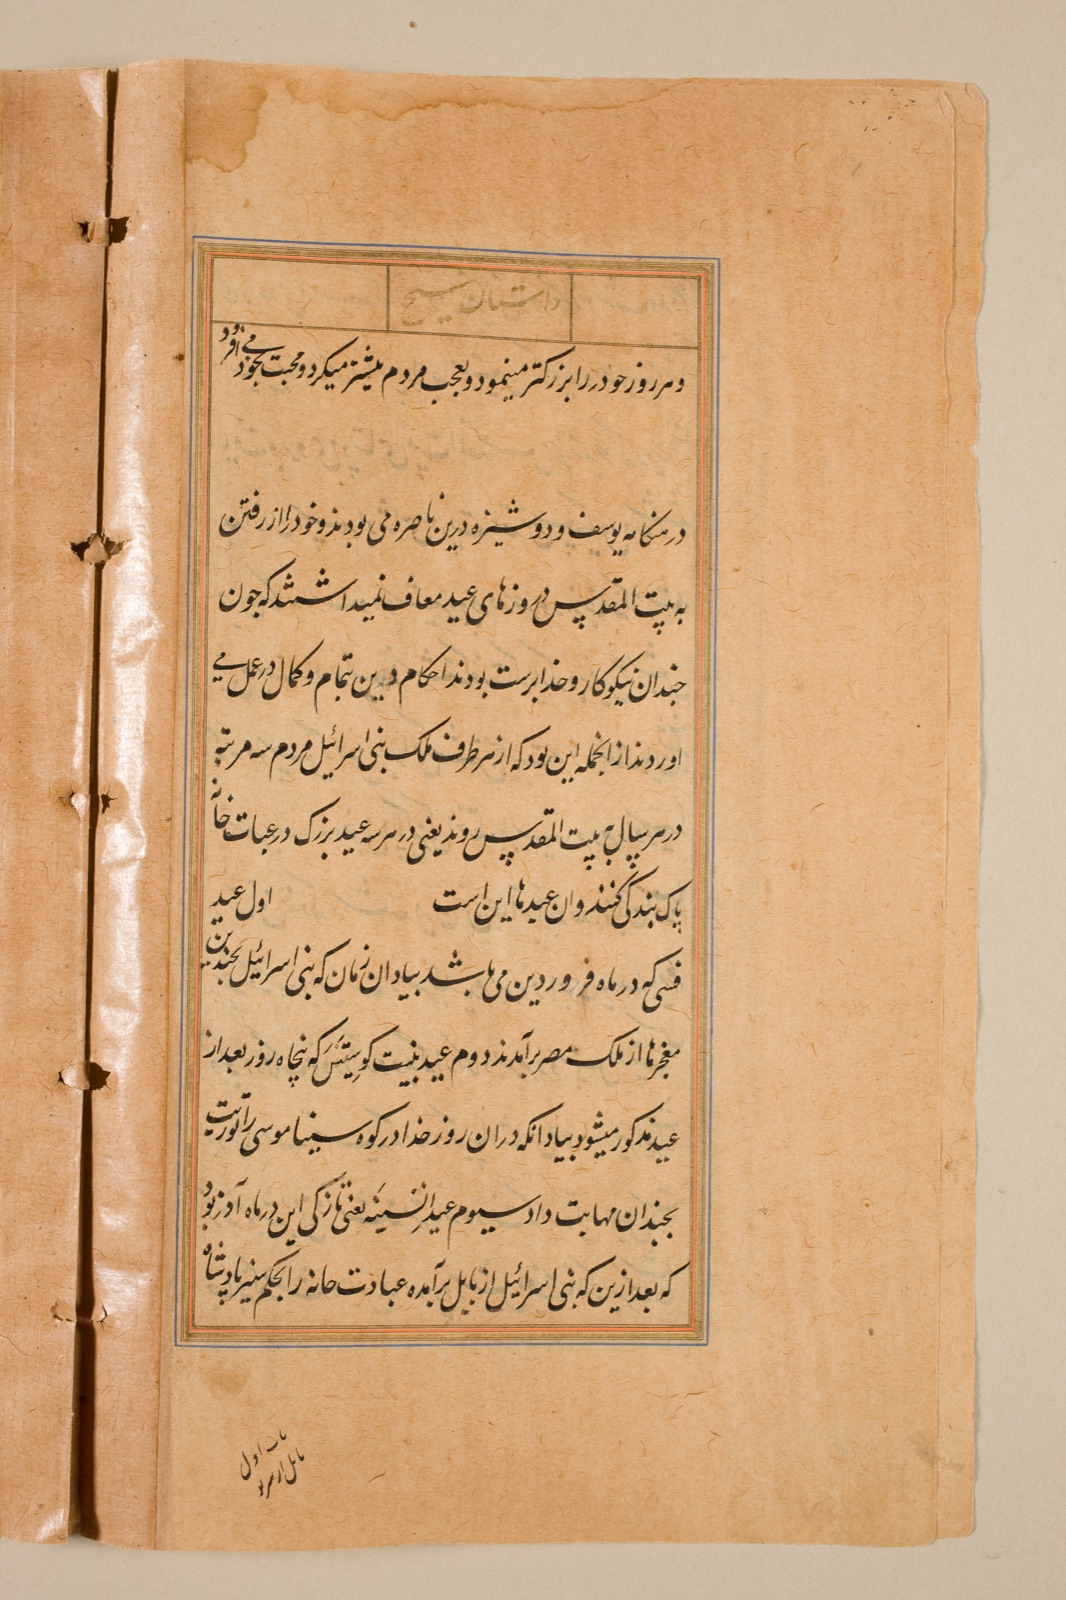 داستان مسیح
و هر روز خود را بزرکتر مینمود و تعجب مردم بیشتر میکرد و محبت بخود می افزود
در هنکامه یوسف و دوشیزه درین ناصره می بودند و خود را از رفتن
به بیت المقدس در روزهای عید معاف نمیداشتند که چون
چندان نیکوکار و خدا پرست بودند احکام دین بتمام و کمال در عمل می
اوردند از انجمله این بود که از هر طرف ملک بنی اسرائیل مردم سه مرتبه
در هر سال به بیت المقدس روند یعنی در هر سه عید بزرک در عبات خانه
پاک بندکی کنند و ان عیدها این است اول عید
فسی که در ماه فروردین می باشد بیاد ان زمان که بنی اسرائیل بچندین
معجزها از ملک مصر برآمدند دوم عید پنیت کوستس که پنجاه روز بعد از
عید مذکور میشود بیاد انکه دران روز خدا در کوه سینا موسی را توریت
بچندان مهابت داد سیوم عید انسینه یعنی تازکی این در ماه آذر بود
که بعد ازین که بنی اسرائیل از بابل برآمده عبادت خانه را بحکم پادشاه
باب اول